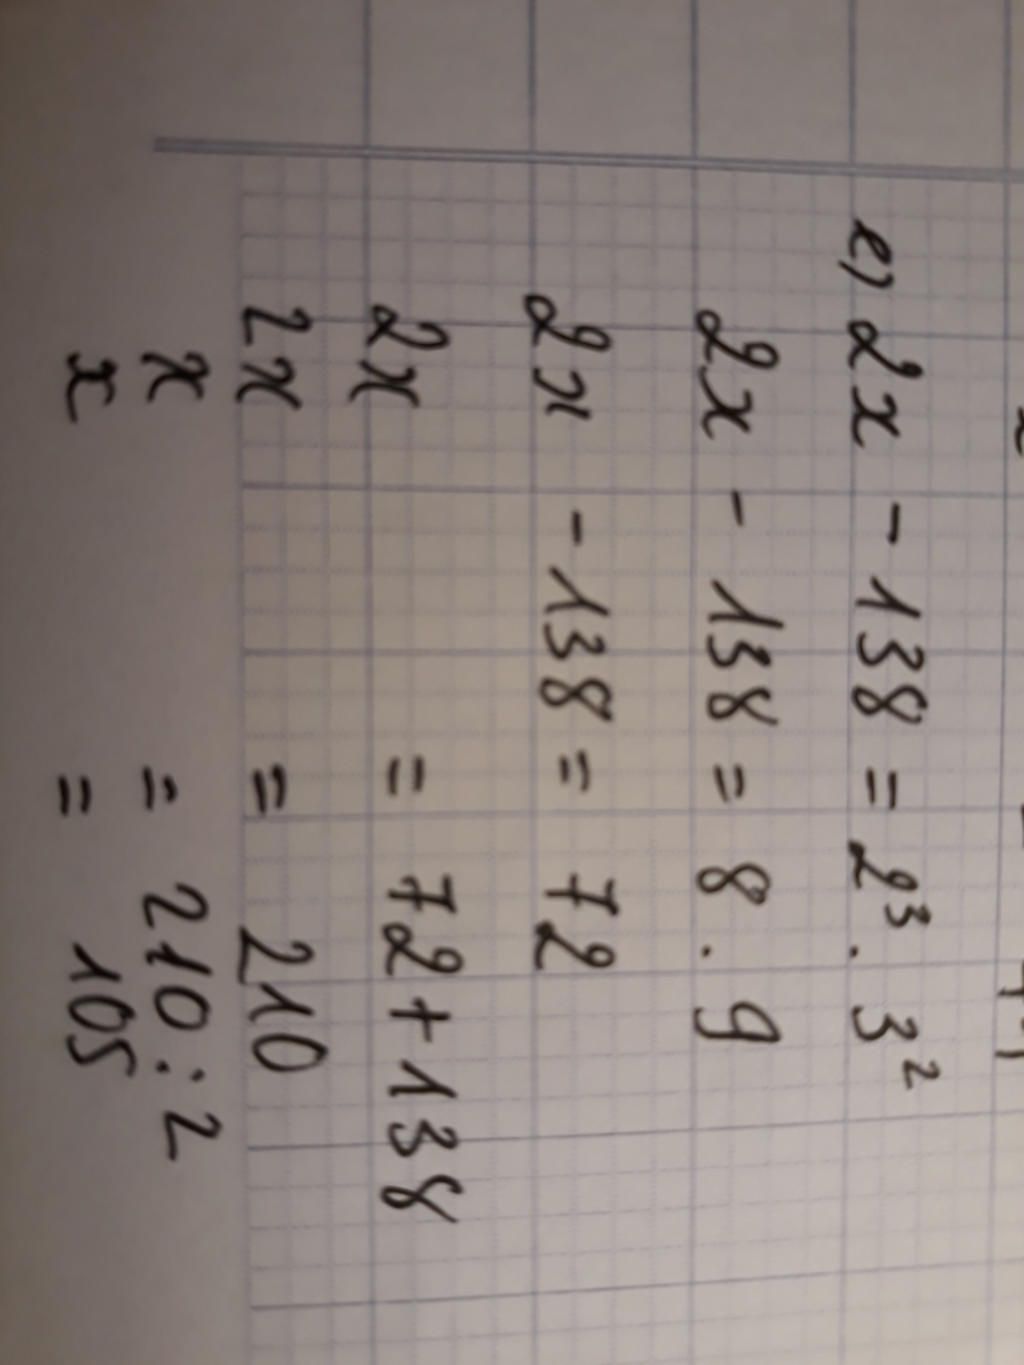 e) 2x - 138 = 2³ . 3²
2x - 138 = 8 . 9
2x - 138 = 72
2x = 72 + 138
2x = 210
x = 210 : 2
x = 105